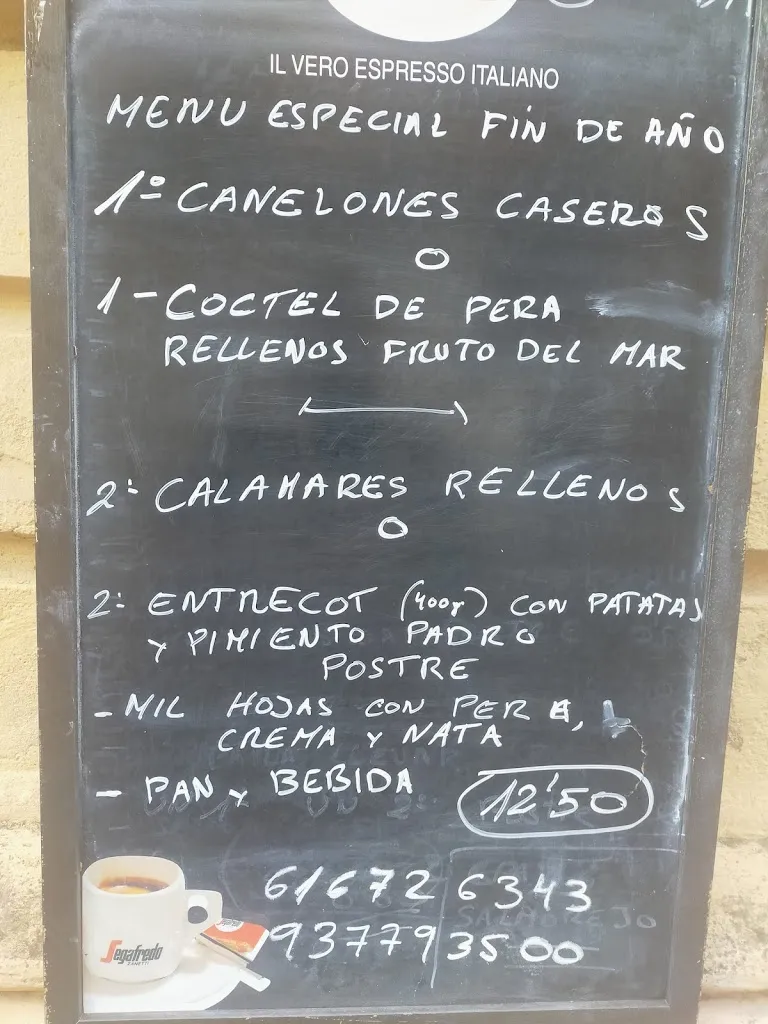 IL VERO ESPRESSO ITALIANO
MENU ESPECIAL FIN DE AÑO
1º CANELONES CASEROS
O
1- COCTEL DE PERA
RELLENOS FRUTO DEL MAR
2: CALAMARES RELLENOS
O
2: ENTRECOT (400gr) CON PATATAS
Y PIMIENTO PADRO
POSTRE
- MIL HOJAS CON PERA,
CREMA Y NATA
- PAN Y BEBIDA
12'50
616726343
937793500
Segafredo
ZANETTI
SALMOREJO